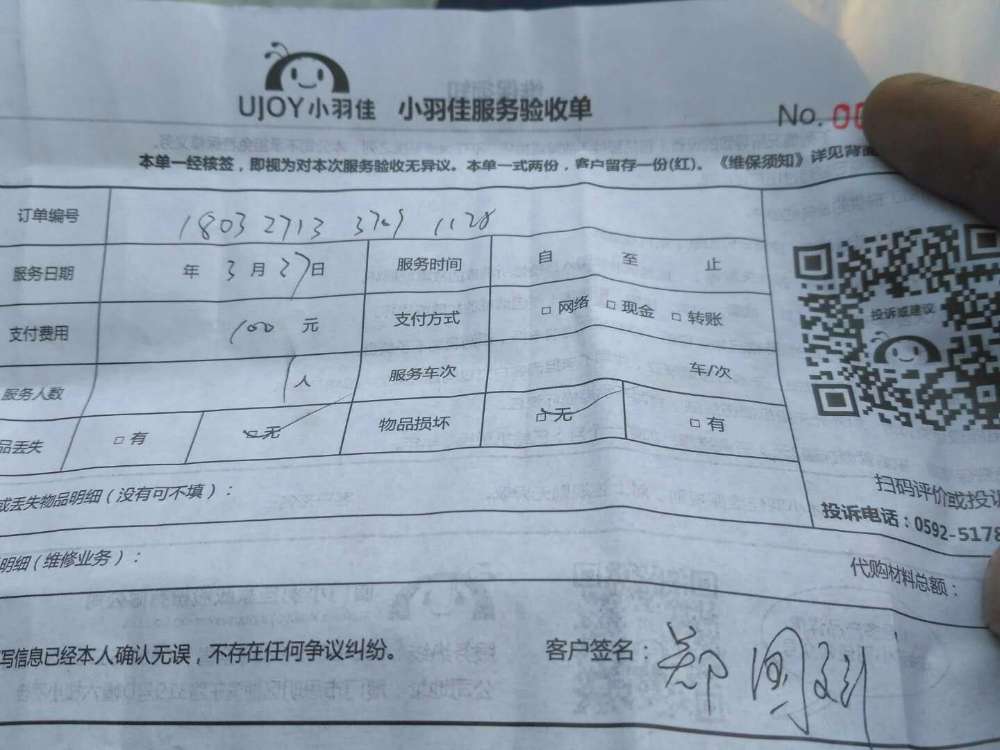 UJOY小羽佳 小羽佳服务验收单 No. 00
本单一经核签，即视为对本次服务验收无异议。本单一式两份，客户留存一份(红)。《维保须知》详见背面
订单编号 1803 2713 3709 1128
服务日期 年 3 月 27 日 服务时间 自 至 止
支付费用 100 元 支付方式 □ 网络 □ 现金 □ 转账
服务人数 1 人 服务车次 车/次
品丢失 □ 有 □ 无 物品损坏 □ 无 □ 有
投诉或建议
或丢失物品明细(没有可不填)：
扫码评价或投诉
投诉电话：0592-5178
明细(维修业务)：
代购材料总额：
写信息已经本人确认无误，不存在任何争议纠纷。 客户签名：郑国